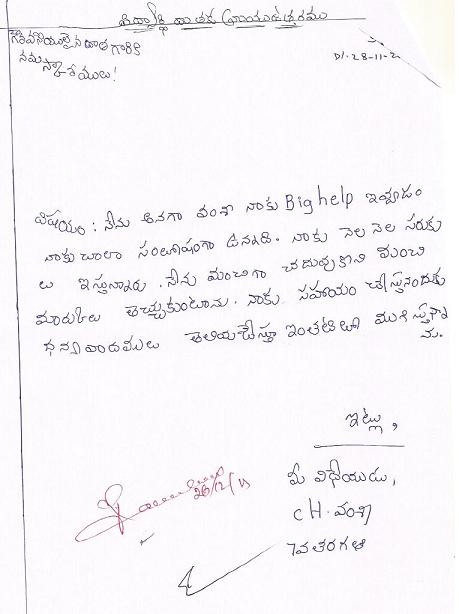 విద్యార్థి
గౌరవనీయులైన దాత గారికి
నమస్కారములు!
Dt.28-11-2
విషయం : నేను అనగా వంశి నాకు Big help ఇవ్వడం
నాకు చాలా సంతోషంగా ఉన్నది. నాకు నెల నెల సరుకు
లు ఇస్తున్నారు. నేను మంచిగా చదువుకొని మంచి
మార్కులు తెచ్చుకుంటాను. నాకు సహాయం చేస్తునందుకు
ధన్యవాదములు తెలియచేస్తూ ఇంతటితో ముగిస్తున్నా
ను.
ఇట్లు,
మీ విధేయుడు,
CH. వంశి
7వ తరగతి
26/12/